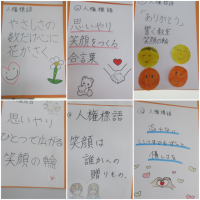 人権標語
やさしさの
数だけ心に
花がさく
人権標語
思いやり
笑顔をつくる
合言葉
ありがとう。
響く教室
笑顔の輪
思いやり
ひとつで広がる
笑顔の輪
人権標語
笑顔は
誰かへの
贈りもの。
人権標語